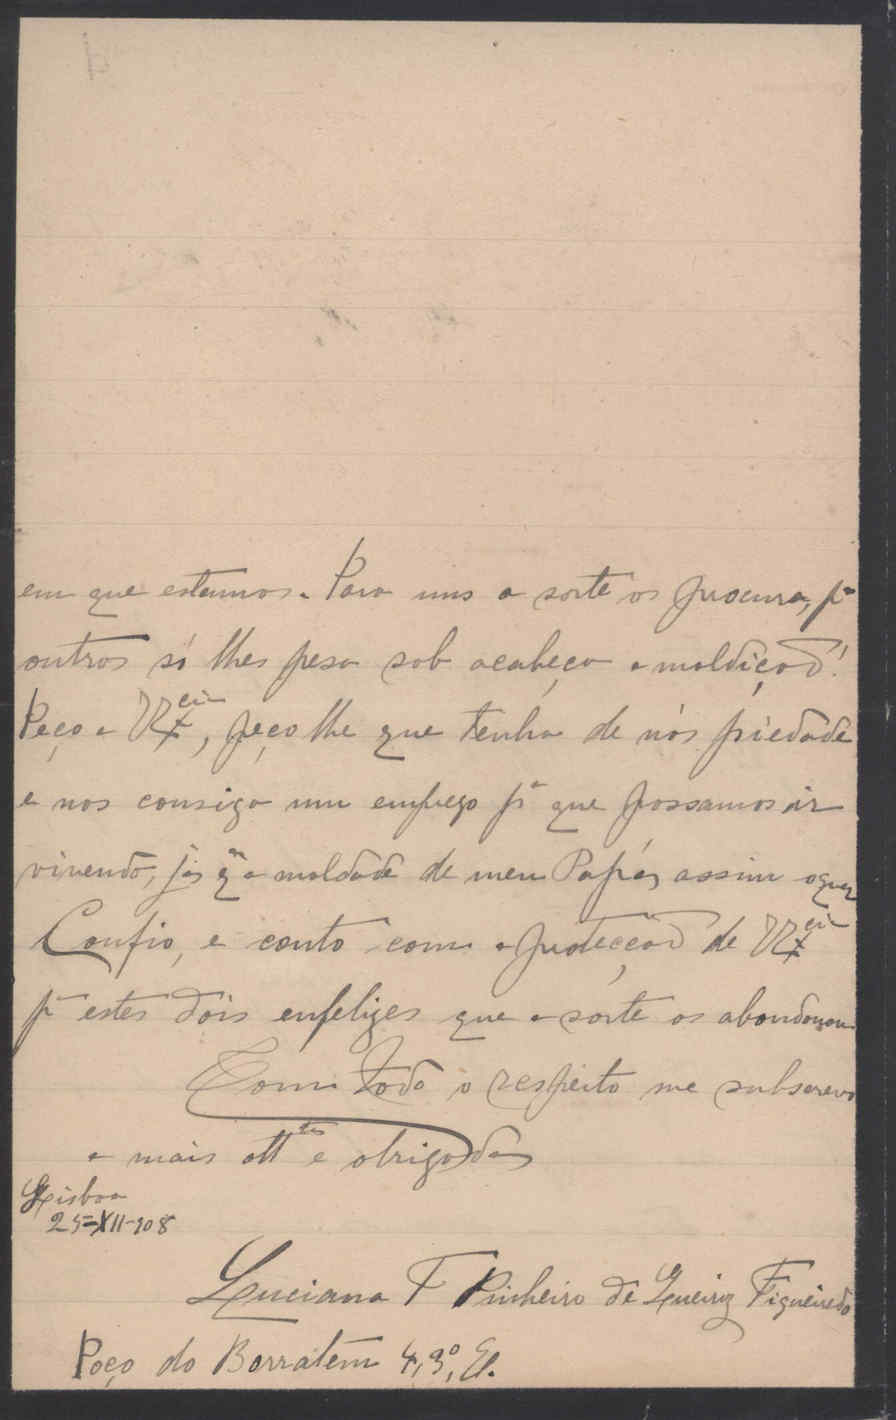 em que estamos. Para uns a sorte os procura, pª
outros só lhes pesa sob acabeça a maldiçaõ!
Peço a VExcia, peço lhe que tenha de nós piedade
e nos consiga um emprego pª que possamos ir
vivendo, já q̃ a maldade de meu Papá, assim o quer
Confio, e conto com a protecçaõ de VExcia
pª estes dois enfelizes que a sorte os abandonou.
Com todo o respeito me subscrevo
a mais attta e obrigada
Lisboa
25-XII-908
Luciana F Pinheiro de Queiroz Figueiredo
Poço do Borratem 4, 3º, E.